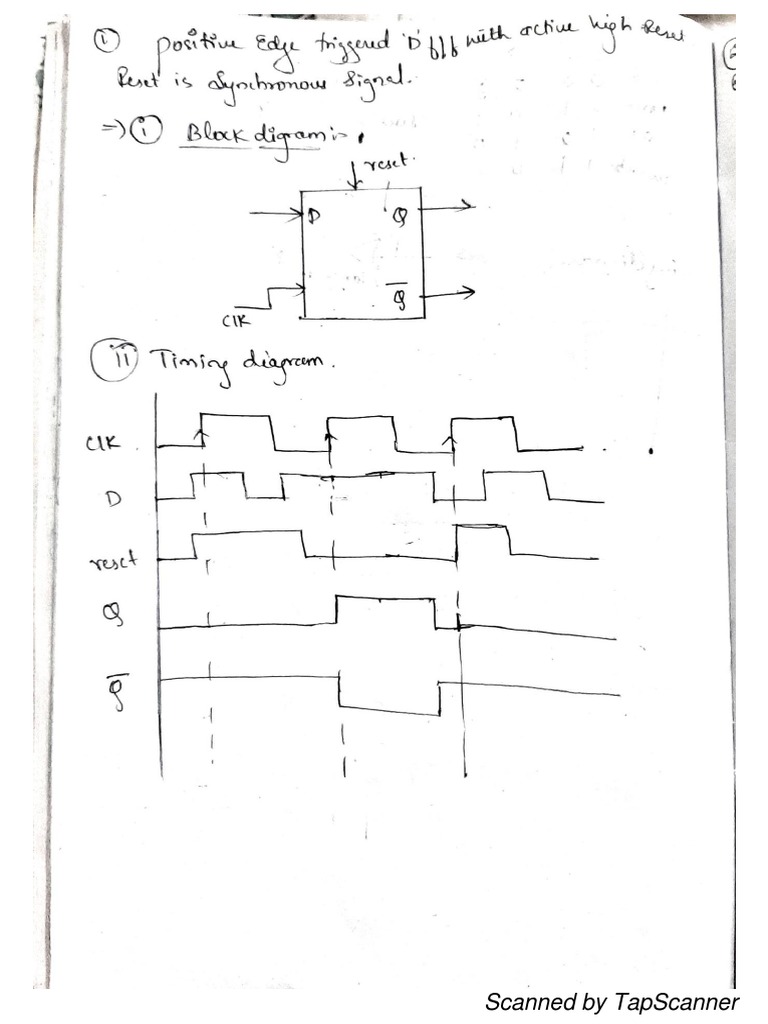 ① positive Edge triggered 'D' f/f with active high Reset
Reset is Synchronous Signal.
⇒ ⓘ Block digram :-
reset.
D Q
Q̅
Clk
ⓘⓘ Timing diagram.
Clk
D
reset
Q
Q̅
Scanned by TapScanner